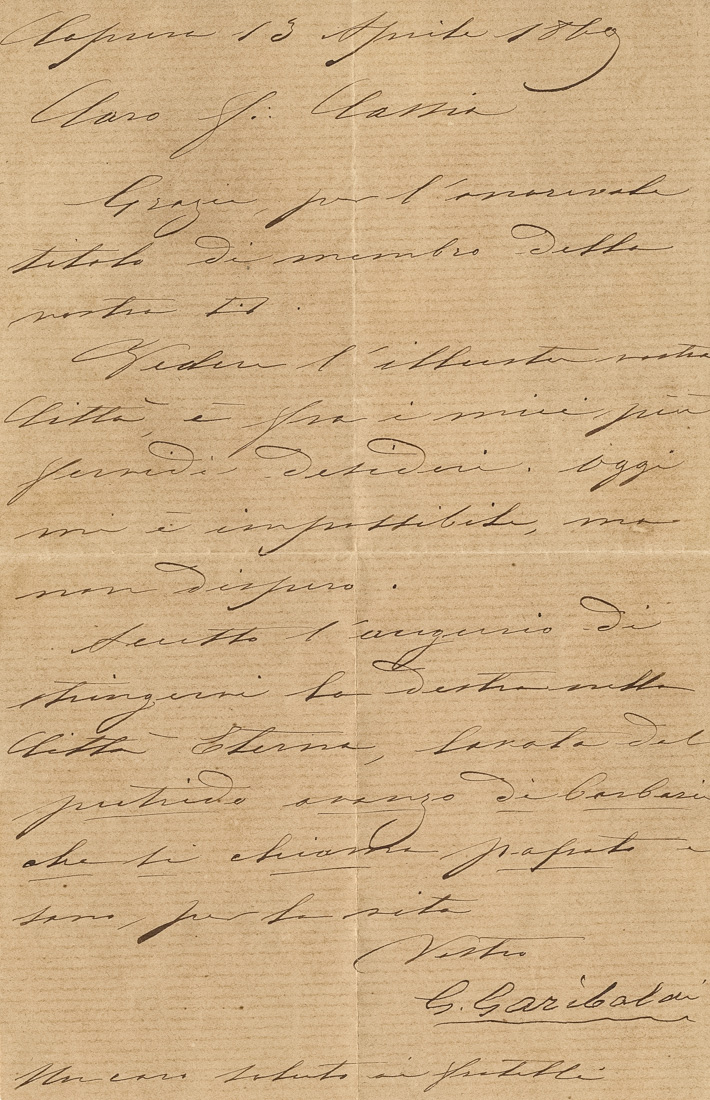 Caprera 13 Aprile 1869
Caro f∴ Classia
Grazie, per l'onorevole
titolo di membro della
vostra
Vedere l'illustre vostra
Città, è fra i miei più
fervidi desideri. Oggi
mi è impossibile, ma
non dispero.
Accetto l'augurio di
stringervi la destra nella
Città Eterna, lavata dal
putrido avanzo di barbarie
che si chiama papato e
sono, per la vita
Vostro
G. Garibaldi
Un caro saluto ai fratelli